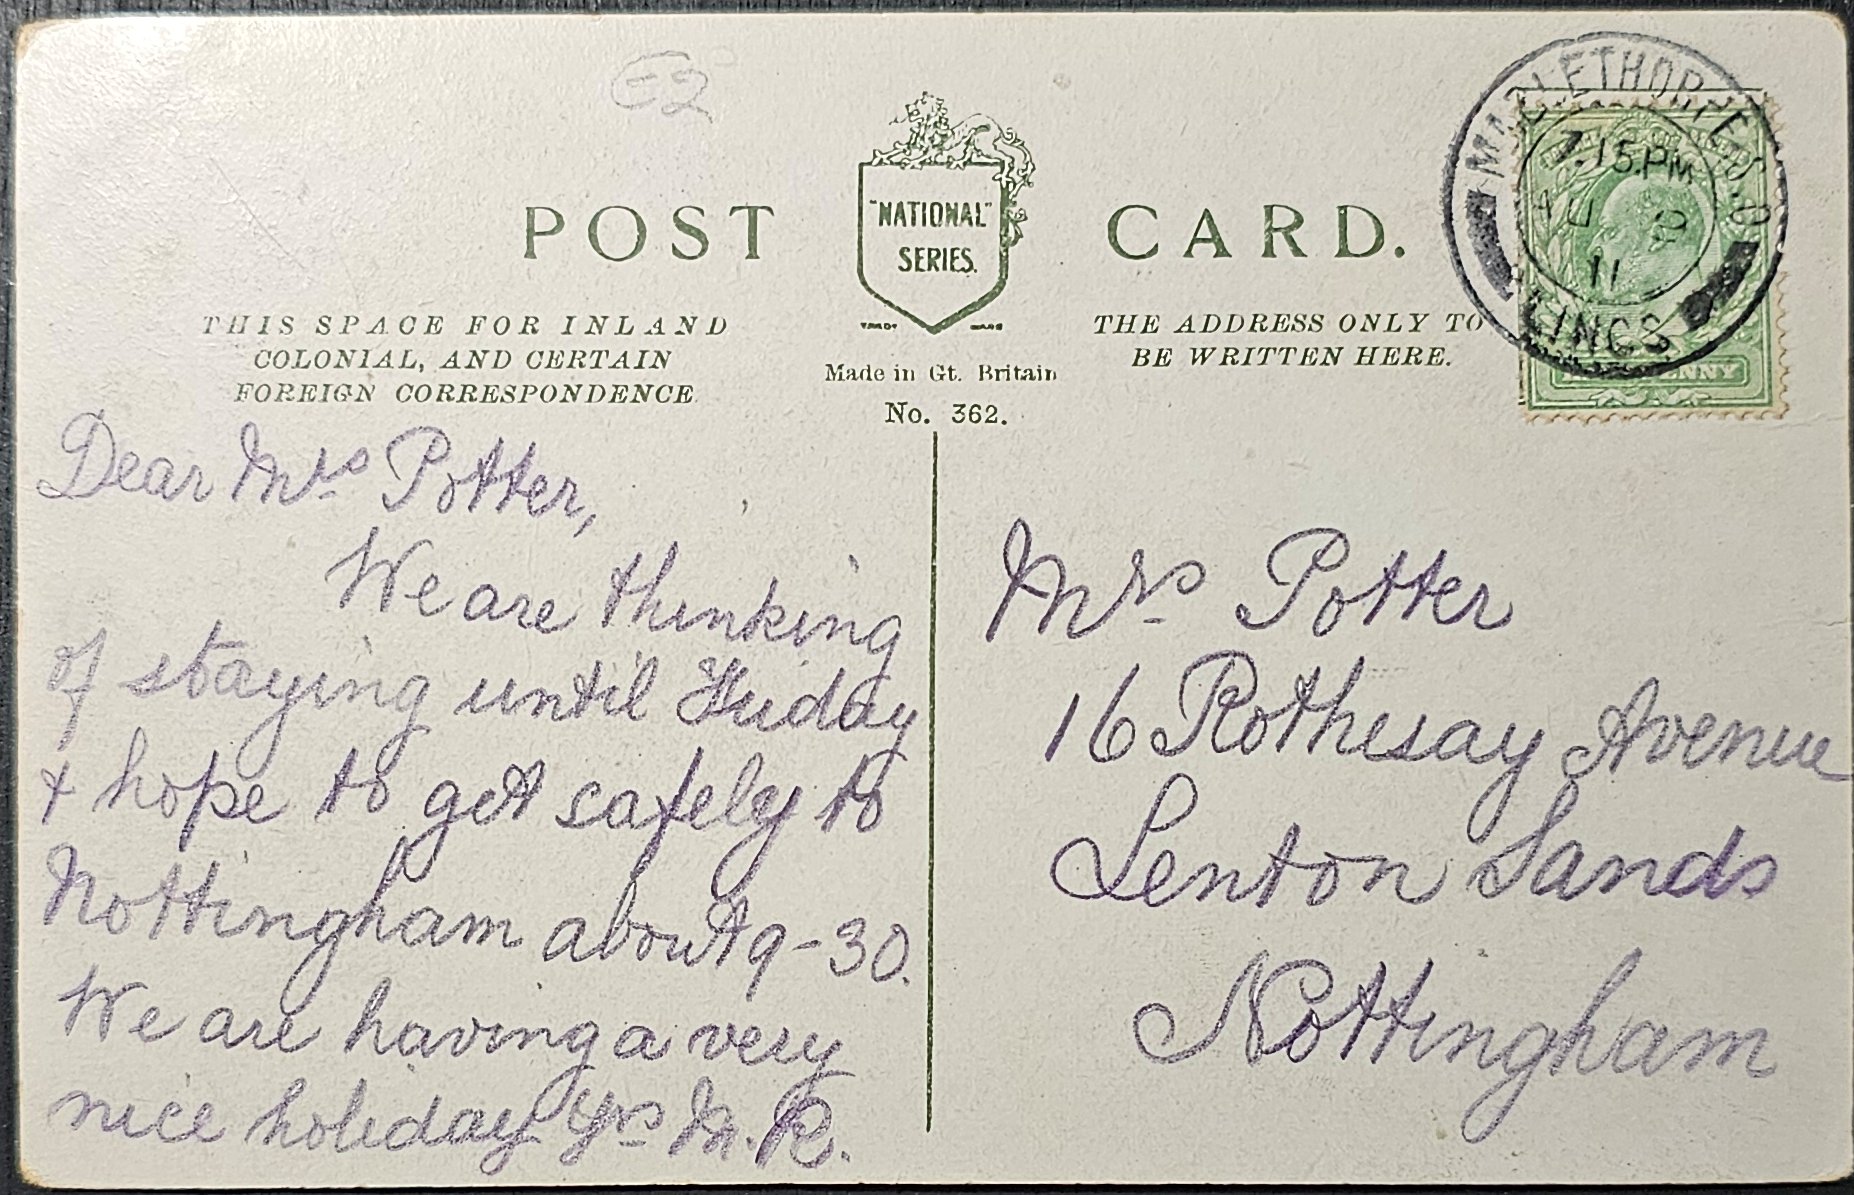 £2
POST CARD.
"NATIONAL"
SERIES.
TRADE MARK
THIS SPACE FOR INLAND
COLONIAL, AND CERTAIN
FOREIGN CORRESPONDENCE
Made in Gt. Britain
No. 362.
THE ADDRESS ONLY TO
BE WRITTEN HERE.
MABLETHORPE S.O
7.15.PM
AU
11
LINCS
Dear Mrs Potter,
We are thinking
of staying until Friday
& hope to get safely to
Nottingham about 9-30.
We are having a very
nice holiday Yrs M. R.
Mrs Potter
16 Rothesay Avenue
Lenton Sands
Nottingham